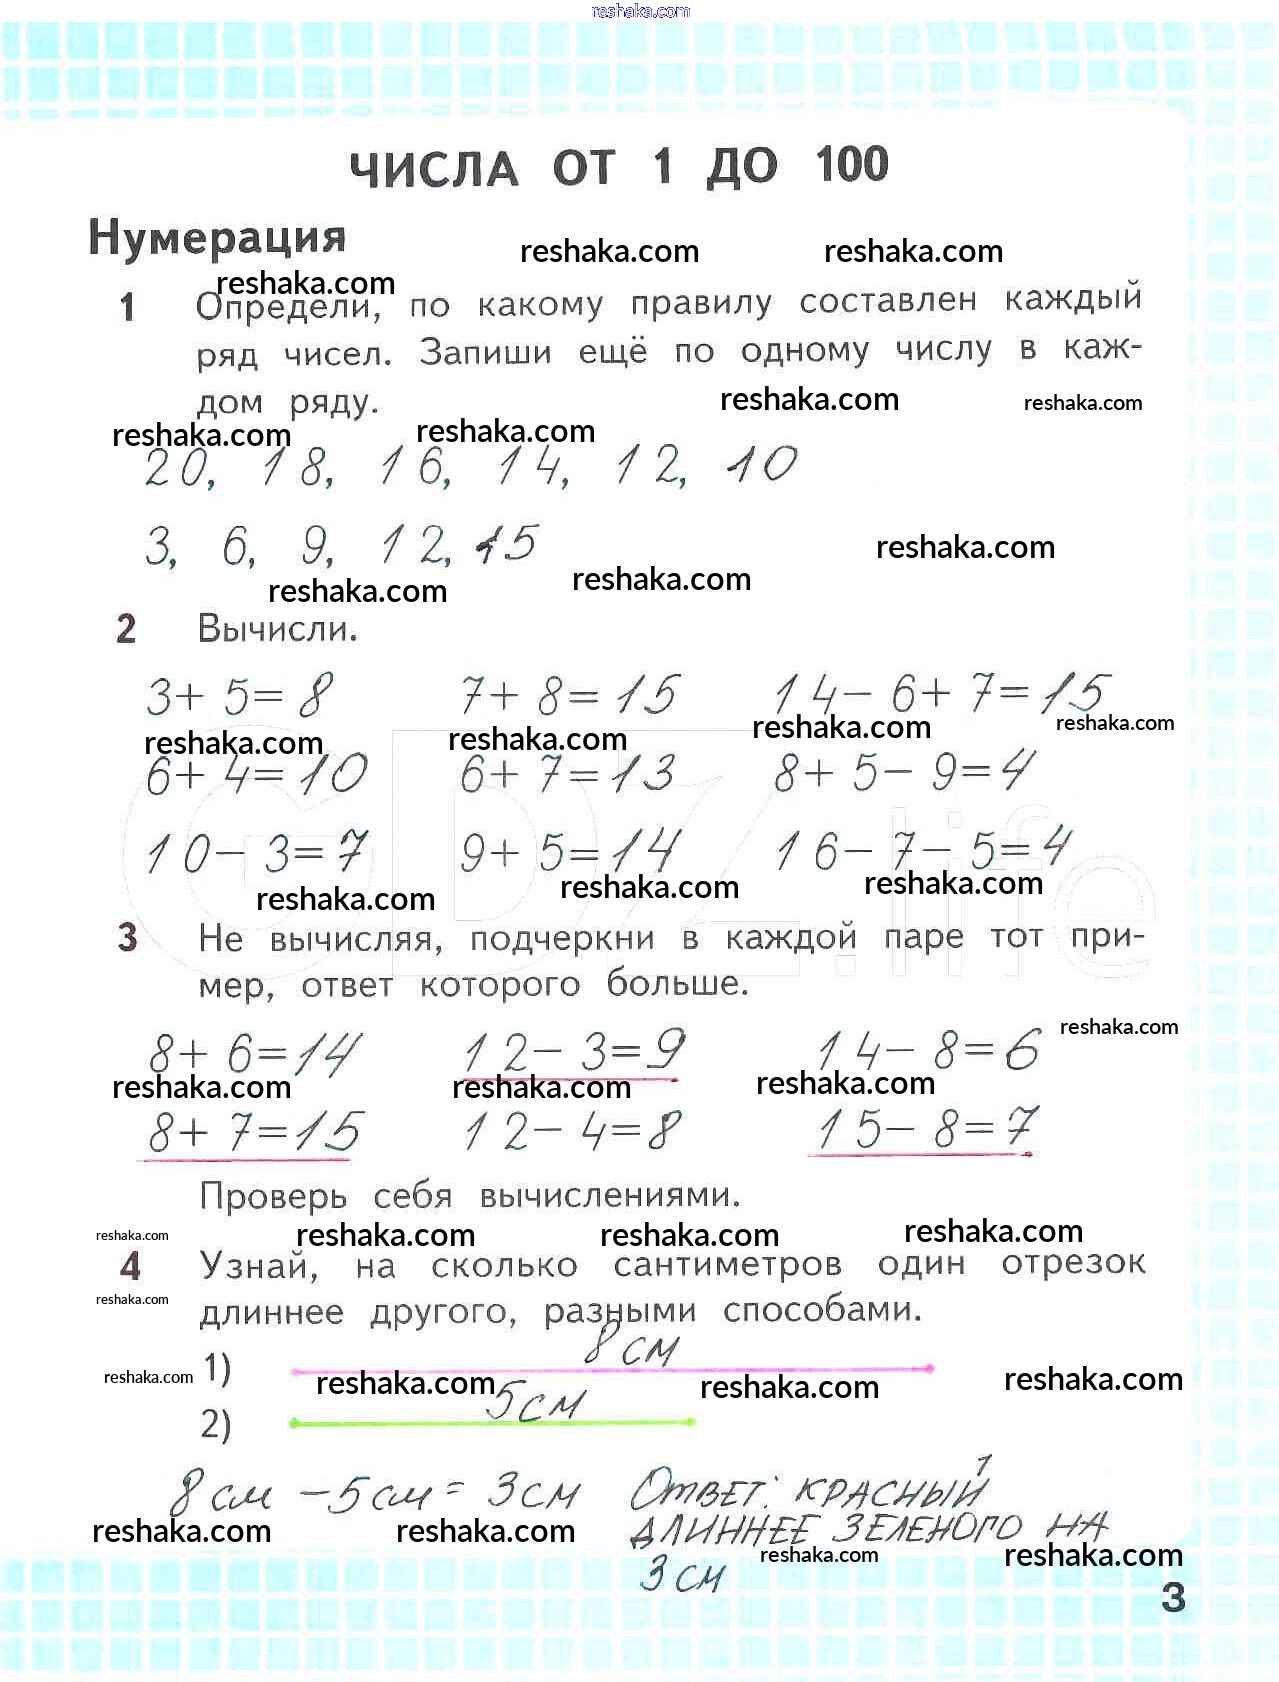 reshaka.com
ЧИСЛА ОТ 1 ДО 100
Нумерация
reshaka.com reshaka.com
reshaka.com
1 Определи, по какому правилу составлен каждый
ряд чисел. Запиши ещё по одному числу в каж-
дом ряду.
reshaka.com reshaka.com
reshaka.com reshaka.com
20, 18, 16, 14, 12, 10
3, 6, 9, 12, 15
reshaka.com
reshaka.com reshaka.com
2 Вычисли.
3+5=8 7+8=15 14-6+7=15
reshaka.com reshaka.com reshaka.com reshaka.com
6+4=10 6+7=13 8+5-9=4
GDZ.life
10-3=7 9+5=14 16-7-5=4
reshaka.com reshaka.com reshaka.com
3 Не вычисляя, подчеркни в каждой паре тот при-
мер, ответ которого больше.
reshaka.com
8+6=14 12-3=9 14-8=6
reshaka.com reshaka.com reshaka.com
8+7=15 12-4=8 15-8=7
Проверь себя вычислениями.
reshaka.com reshaka.com reshaka.com reshaka.com
4 Узнай, на сколько сантиметров один отрезок
reshaka.com
длиннее другого, разными способами.
8 см
1)
reshaka.com reshaka.com reshaka.com reshaka.com
5 см
2)
8 см - 5 см = 3 см Ответ: красный
длиннее зеленого на
3 см
reshaka.com reshaka.com
reshaka.com reshaka.com
3